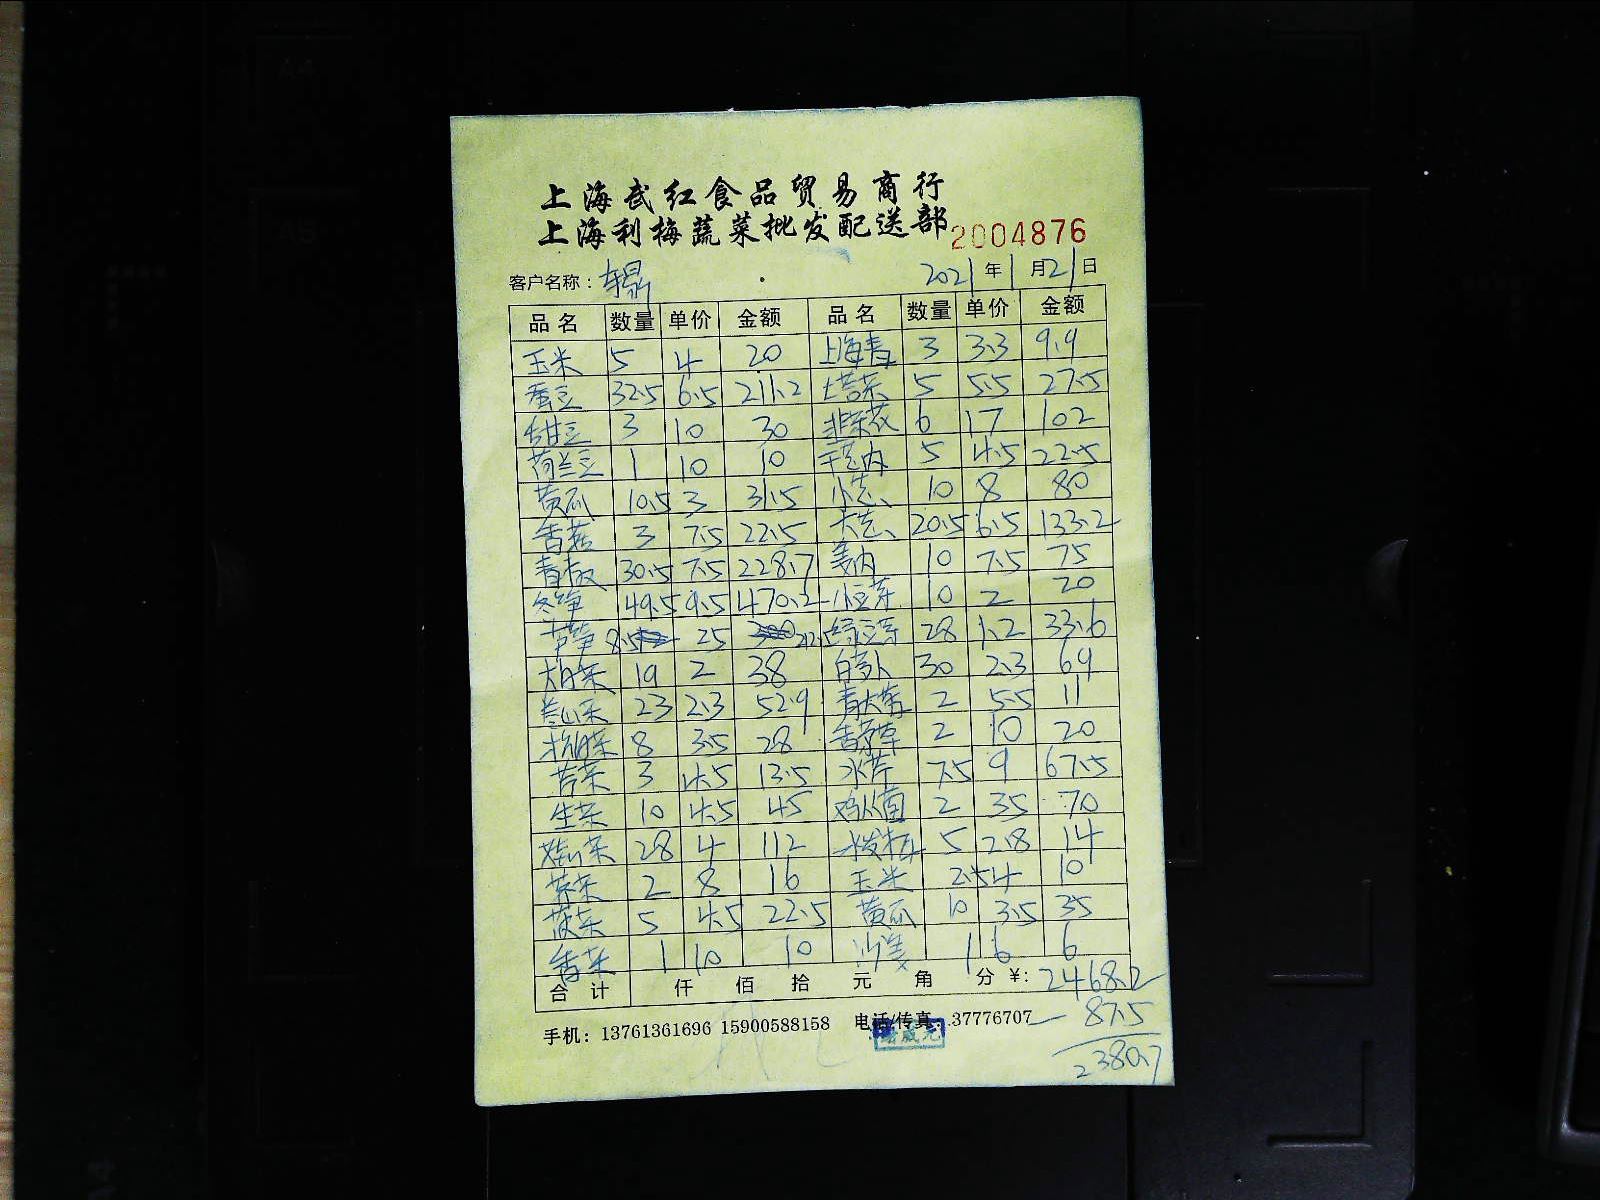 上海武红食品贸易商行
上海利梅蔬菜批发配送部 2004876
客户名称： 2021年1月21日
品名 数量 单价 金额 品名 数量 单价 金额
玉米 5 4 20 上海青 3 3.3 9.9
蚕豆 32.5 6.5 211.2 塔菜 5 5.5 27.5
甜豆 3 10 30 韭菜花 6 17 102
荷兰豆 1 10 10 干芝肉 5 4.5 22.5
黄瓜 10.5 3 31.5 小芝 10 8 80
香菇 3 7.5 22.5 大芝 20.5 6.5 133.2
青椒 30.5 7.5 228.7 姜肉 10 7.5 75
冬笋 49.5 9.5 470.2 小豆芽 10 2 20
芦笋 8.5 25 212.5 绿豆芽 28 1.2 33.6
大白菜 19 2 38 白萝卜 30 2.3 69
卷心菜 23 2.3 52.9 青大蒜 2 5.5 11
杭白菜 8 3.5 28 香茅草 2 10 20
苦菜 3 4.5 13.5 水芹 7.5 9 67.5
生菜 10 4.5 45 鸡从菌 2 35 70
娃心菜 28 4 112 5 2.8 14
茶菜 2 8 16 玉米 2.5 4 10
菠菜 5 4.5 22.5 黄瓜 10 3.5 35
香菜 1 10 10 沙姜 1 6 6
合计 仟 佰 拾 元 角 分 ¥: 2468.2
手机：13761361696 15900588158 电话/传真：37776707 - 87.5
2380.7